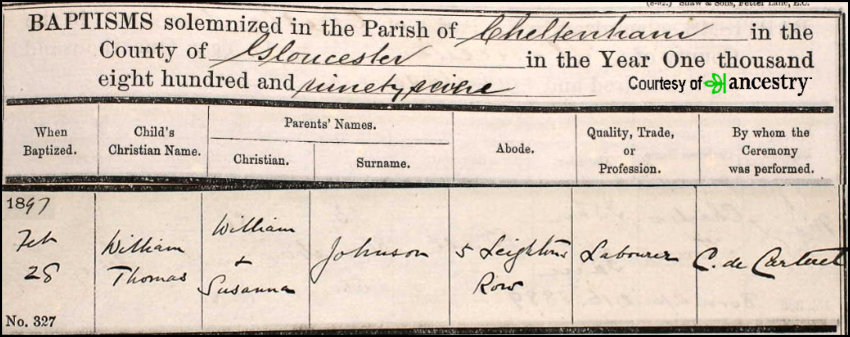 (8-92.) Shaw & Sons, Fetter Lane, E.C.
BAPTISMS solemnized in the Parish of Cheltenham in the
County of Gloucester in the Year One thousand
eight hundred and ninety seven
Courtesy of ancestry
When Baptized.
Child's Christian Name.
Parents' Names.
Christian.
Surname.
Abode.
Quality, Trade, or Profession.
By whom the Ceremony was performed.
1897
Feb
28
No. 327
William
Thomas
William
+
Susanna
Johnson
5 Leightons
Row
Labourer
C. de Carteret